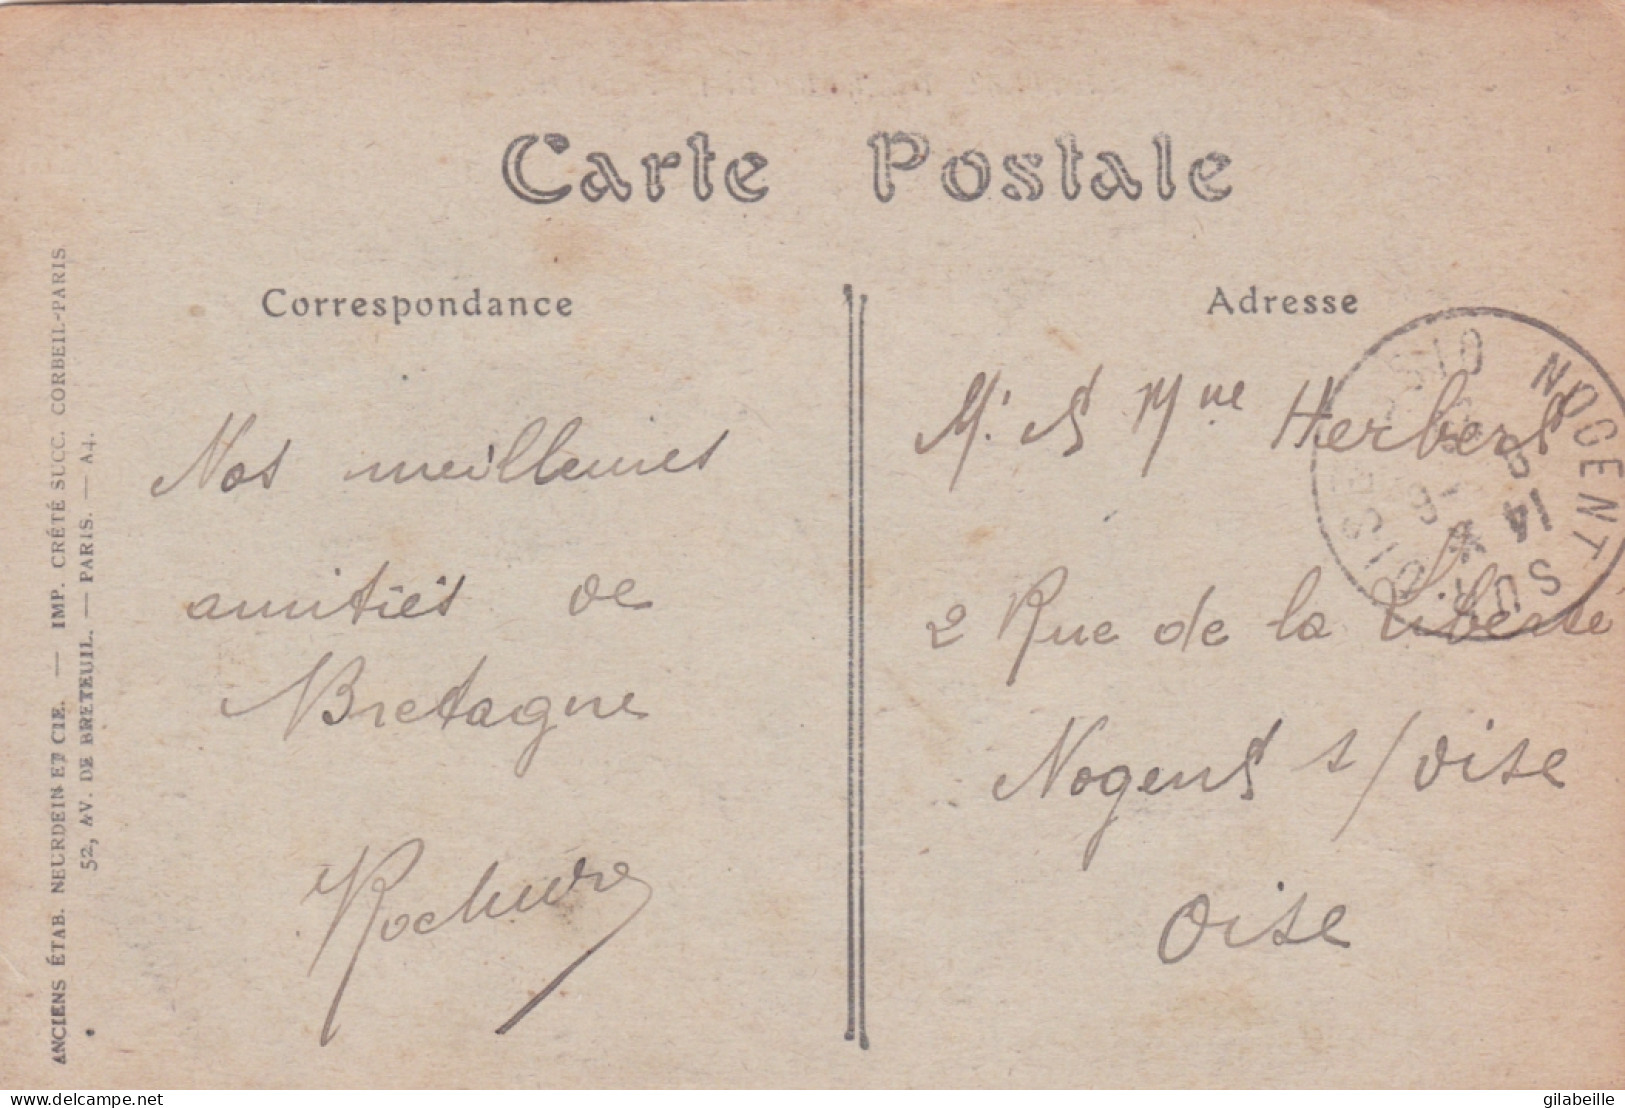 Carte Postale
Correspondance
Adresse
ANCIENS ÉTAB. NEURDEIN ET CIE. — IMP. CRÉTÉ SUCC. CORBEIL-PARIS
52, AV. DE BRETEUIL. — PARIS. — A4.
Nos meilleures
amitiés de
Bretagne
M. et Mme Herbert
2 Rue de la Liberté
Nogent s/ Oise
Oise
NOGENT SUR OISE
OISE
14
delcampe.net
gilabeille